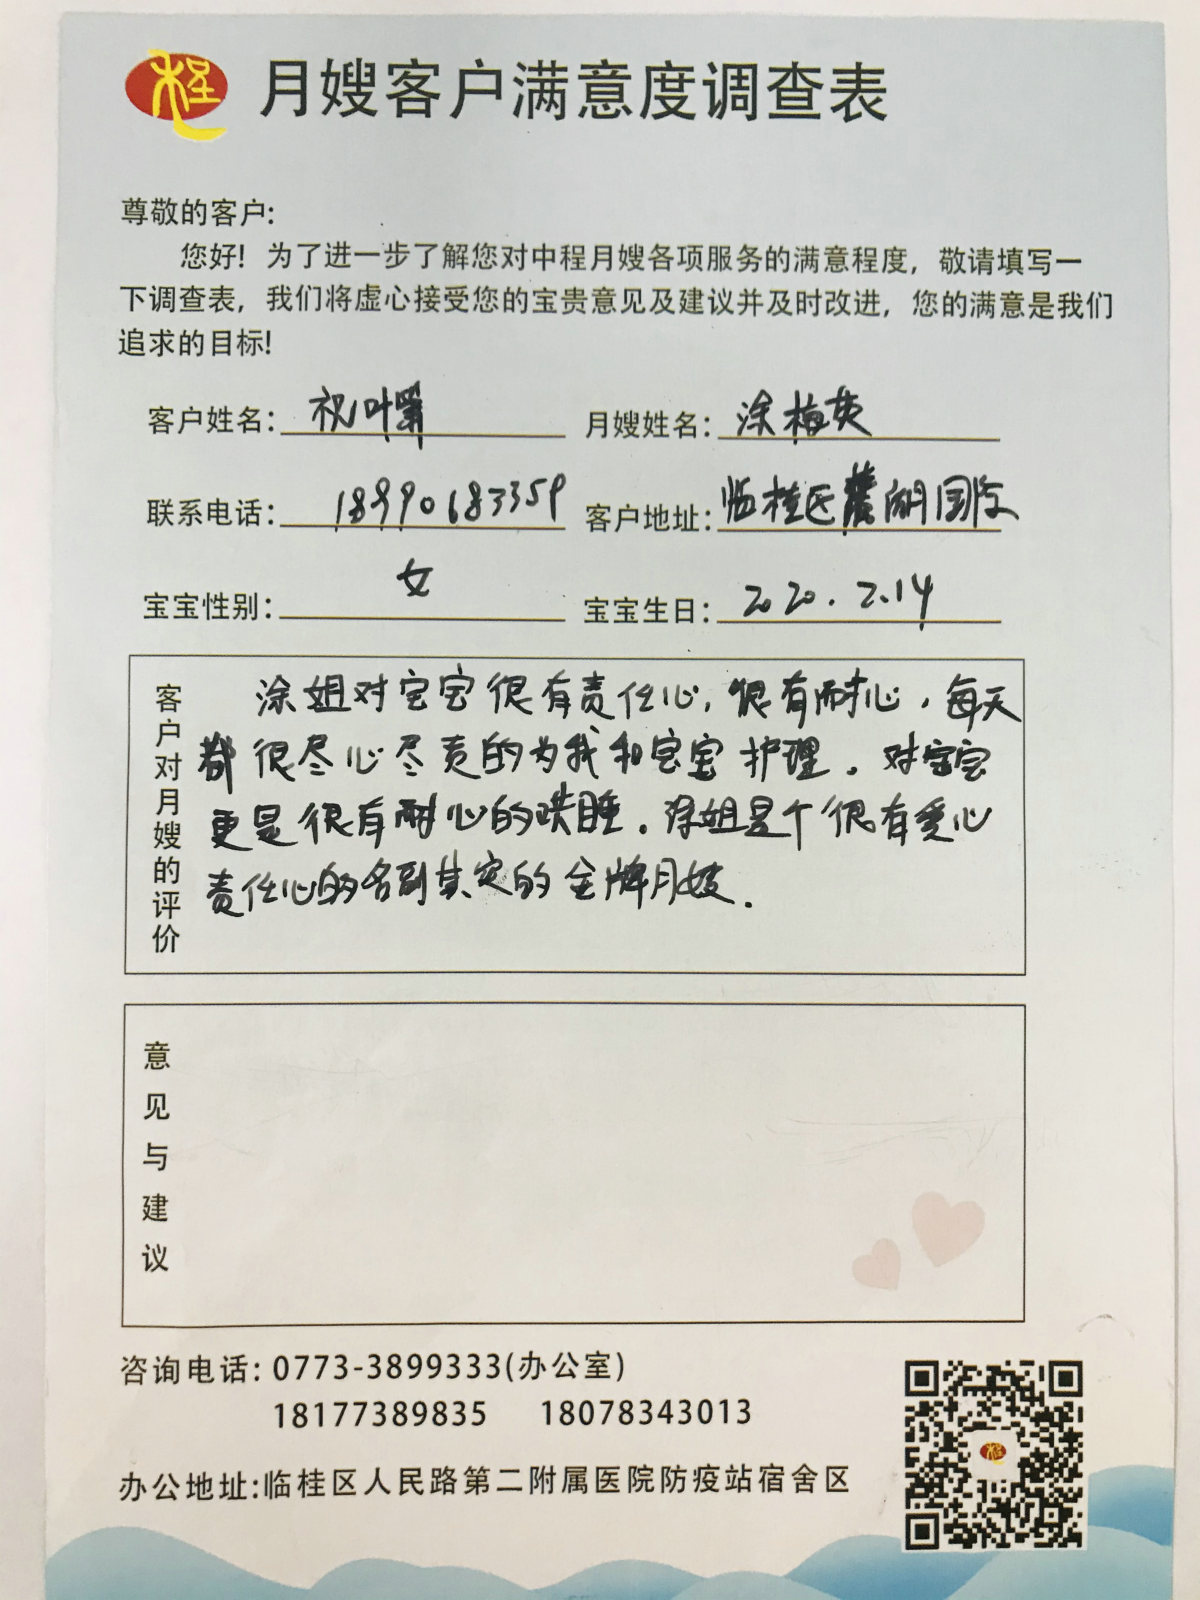 程
月嫂客户满意度调查表
尊敬的客户:
您好！为了进一步了解您对中程月嫂各项服务的满意程度，敬请填写一
下调查表，我们将虚心接受您的宝贵意见及建议并及时改进，您的满意是我们
追求的目标!
客户姓名： 祝叶
月嫂姓名： 涂梅英
联系电话： 18990683359
客户地址： 临桂区 国际
宝宝性别： 女
宝宝生日： 2020.2.14
客户对月嫂的评价
涂姐对宝宝很有责任心，很有耐心，每天
都很尽心尽责的为我和宝宝护理。对宝宝
更是很有耐心的哄睡。涂姐是个很有爱心
责任心的名副其实的金牌月嫂.
意见与建议
咨询电话: 0773-3899333(办公室)
18177389835 18078343013
办公地址:临桂区人民路第二附属医院防疫站宿舍区